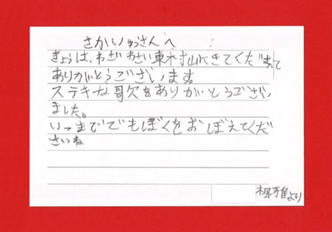 さかいゆうさんへ
きょうは、わざわざ東村山にきてくださって
ありがとうございます
ステキな歌をありがとうござい
ました。
いつまででもぼくをおぼえてくだ
さいね
より